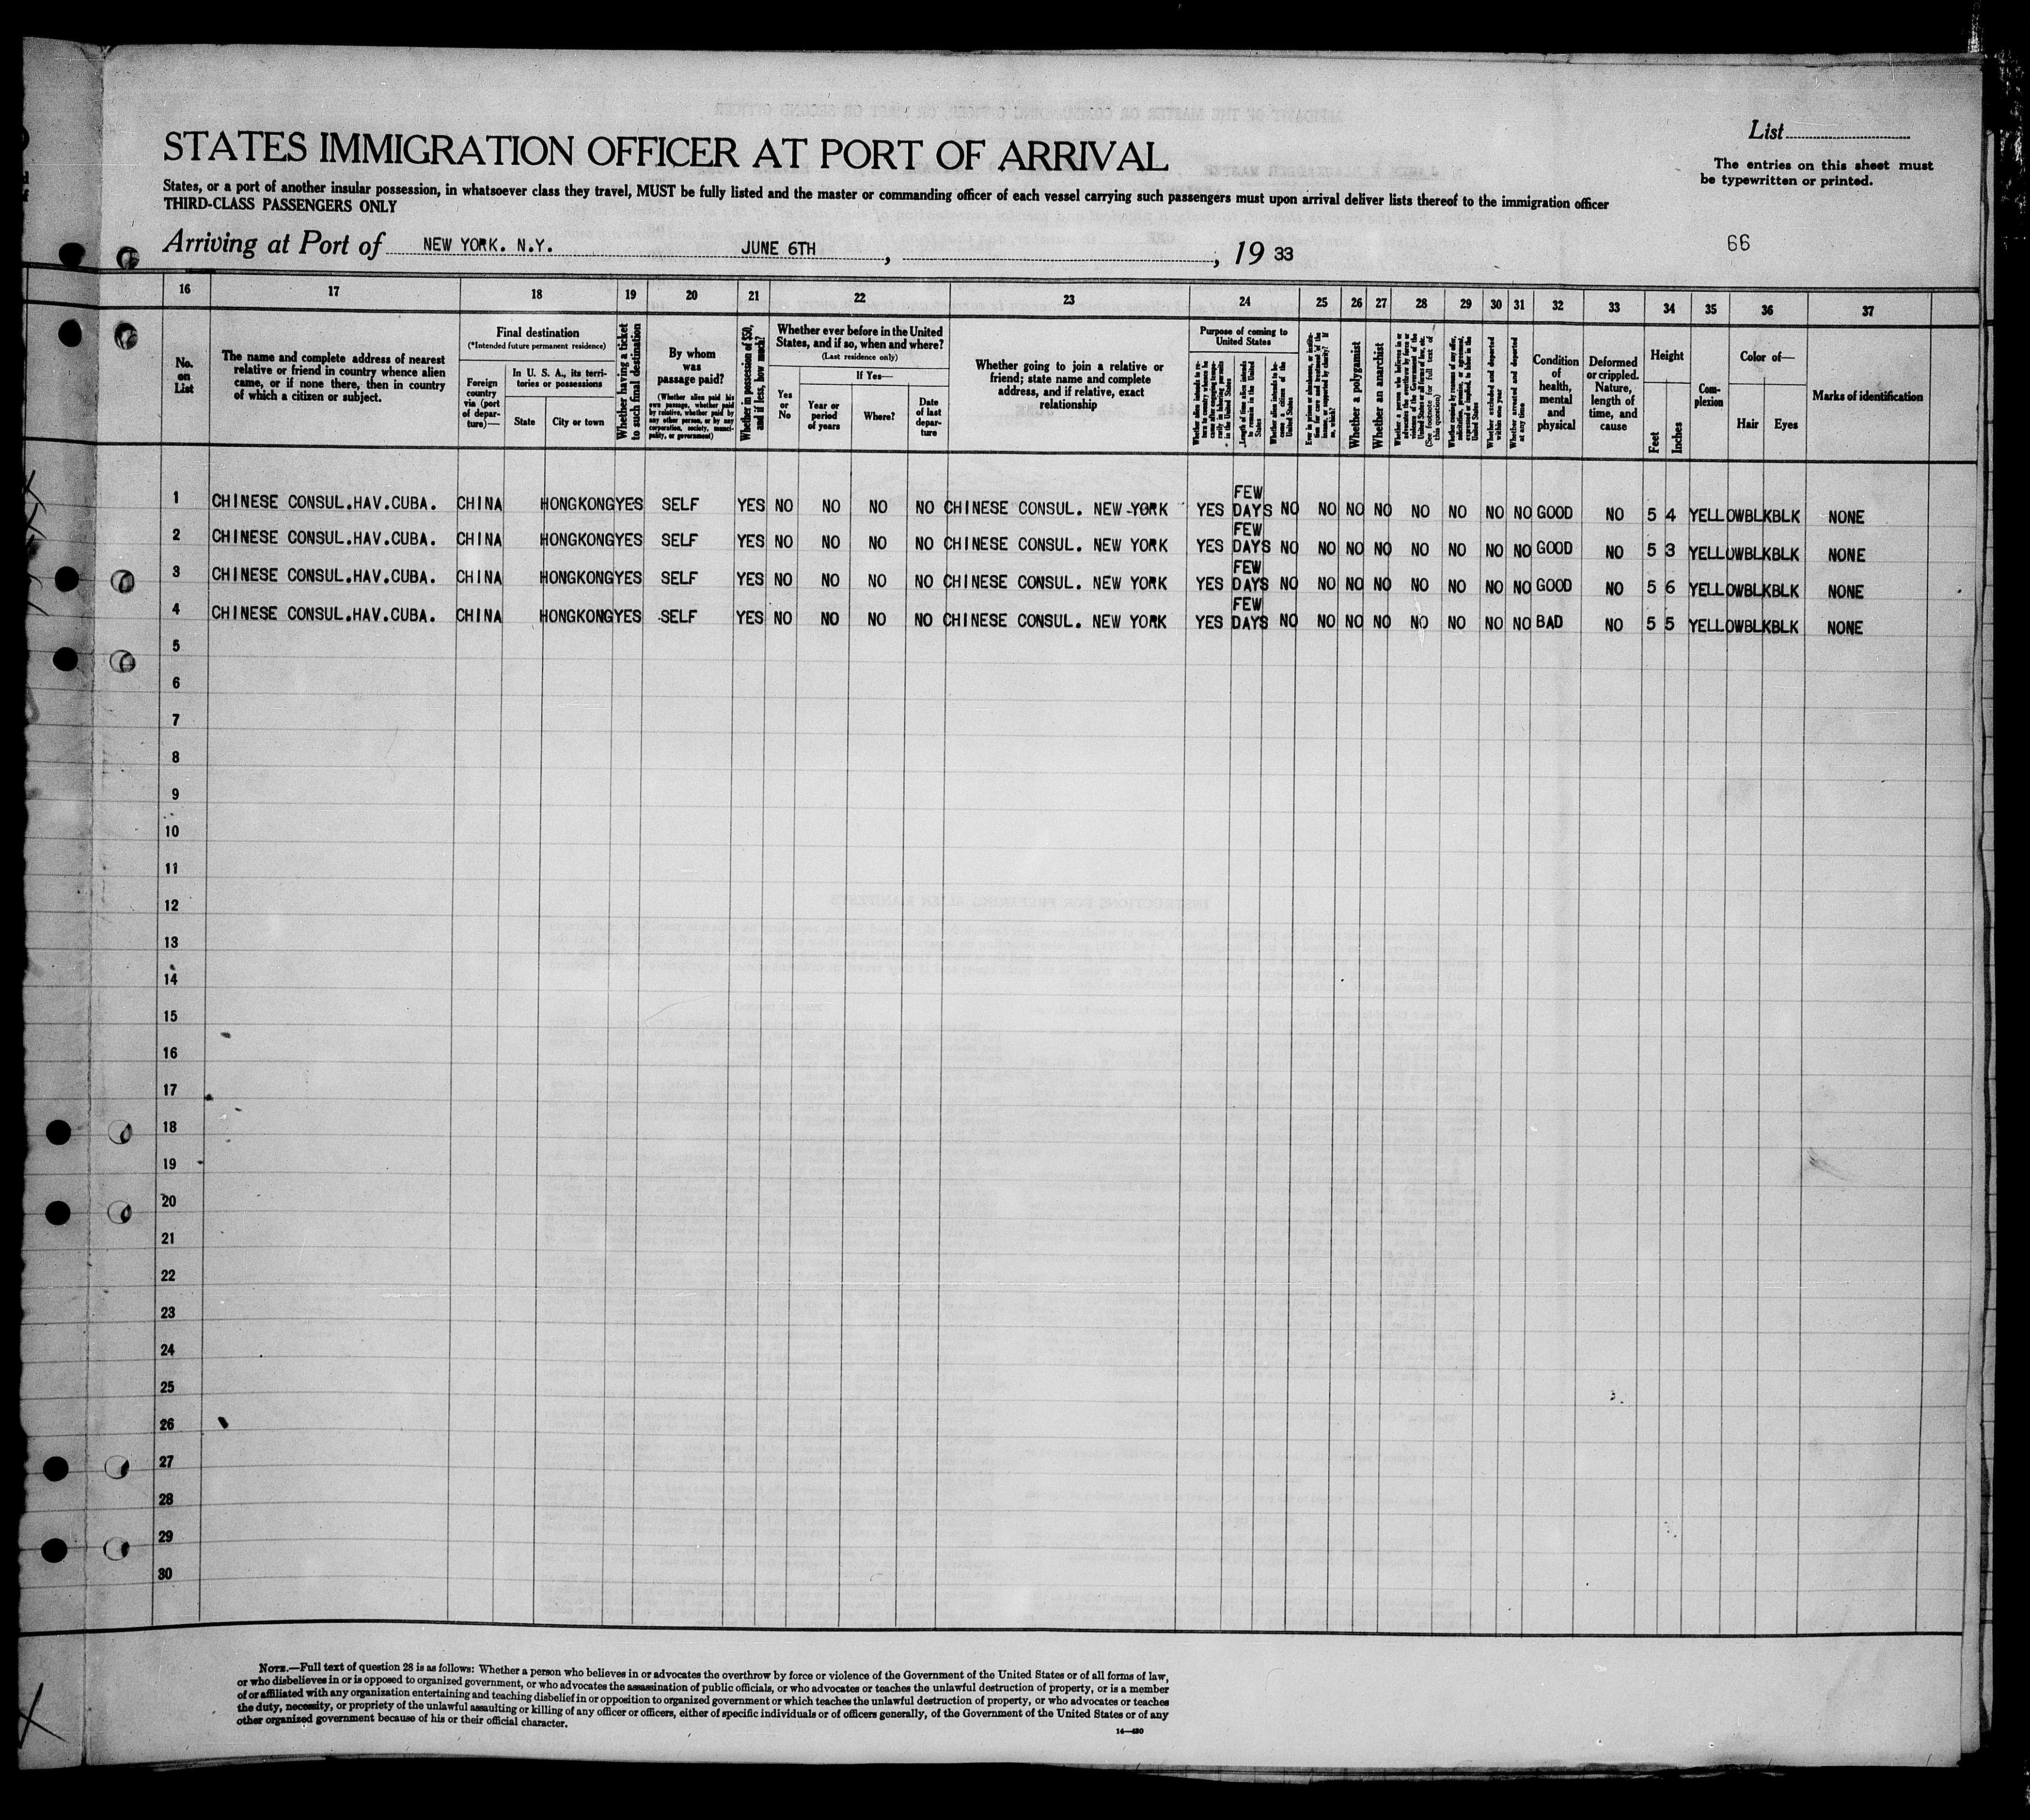 STATES IMMIGRATION OFFICER AT PORT OF ARRIVAL
List
The entries on this sheet must
be typewritten or printed.
States, or a port of another insular possession, in whatsoever class they travel, MUST be fully listed and the master or commanding officer of each vessel carrying such passengers must upon arrival deliver lists thereof to the immigration officer
THIRD-CLASS PASSENGERS ONLY
Arriving at Port of NEW YORK. N.Y. JUNE 6TH , , 19 33
66
16 17 18 19 20 21 22 23 24 25 26 27 28 29 30 31 32 33 34 35 36 37
No.
on
List
The name and complete address of nearest
relative or friend in country whence alien
came, or if none there, then in country
of which a citizen or subject.
Final destination
(*Intended future permanent residence)
Foreign
country
via (port
of depar-
ture)—
In U. S. A., its terri-
tories or possessions
State
City or town
Whether having a ticket
to such final destination
By whom
was
passage paid?
(Whether alien paid his
own passage, whether paid
by relative, whether paid by
any other person, or by any
corporation, society, munici-
pality, or government)
Whether in possession of $50,
and if less, how much?
Whether ever before in the United
States, and if so, when and where?
(Last residence only)
Yes
or
No
If Yes—
Year or
period
of years
Where?
Date
of last
depar-
ture
Whether going to join a relative or
friend; state name and complete
address, and if relative, exact
relationship
Purpose of coming to
United States
Length of time alien intends
to remain in the United
States
Whether alien intends to be-
come a citizen of the
United States
Whether a polygamist
Whether an anarchist
Whether excluded and deported
within one year
Whether arrested and deported
at any time
Condition
of
health,
mental
and
physical
Deformed
or crippled.
Nature,
length of
time, and
cause
Height
Feet
Inches
Com-
plexion
Color of—
Hair
Eyes
Marks of identification
1 CHINESE CONSUL.HAV.CUBA. CHINA HONGKONG YES SELF YES NO NO NO NO CHINESE CONSUL. NEW YORK YES FEW DAYS NO NO NO NO NO NO NO NO GOOD NO 5 4 YELLOW BLK BLK NONE
2 CHINESE CONSUL.HAV.CUBA. CHINA HONGKONG YES SELF YES NO NO NO NO CHINESE CONSUL. NEW YORK YES FEW DAYS NO NO NO NO NO NO NO NO GOOD NO 5 3 YELLOW BLK BLK NONE
3 CHINESE CONSUL.HAV.CUBA. CHINA HONGKONG YES SELF YES NO NO NO NO CHINESE CONSUL. NEW YORK YES FEW DAYS NO NO NO NO NO NO NO NO GOOD NO 5 6 YELLOW BLK BLK NONE
4 CHINESE CONSUL.HAV.CUBA. CHINA HONGKONG YES SELF YES NO NO NO NO CHINESE CONSUL. NEW YORK YES FEW DAYS NO NO NO NO NO NO NO NO BAD NO 5 5 YELLOW BLK BLK NONE
5
6
7
8
9
10
11
12
13
14
15
16
17
18
19
20
21
22
23
24
25
26
27
28
29
30
NOTE.—Full text of question 28 is as follows: Whether a person who believes in or advocates the overthrow by force or violence of the Government of the United States or of all forms of law,
or who disbelieves in or is opposed to organized government, or who advocates the assassination of public officials, or who advocates or teaches the unlawful destruction of property, or is a member
of or affiliated with any organization entertaining and teaching disbelief in or opposition to organized government or which teaches the unlawful destruction of property, or who advocates or teaches
the duty, necessity, or propriety of the unlawful assaulting or killing of any officer or officers, either of specific individuals or of officers generally, of the Government of the United States or of any
other organized government because of his or their official character.
14—480